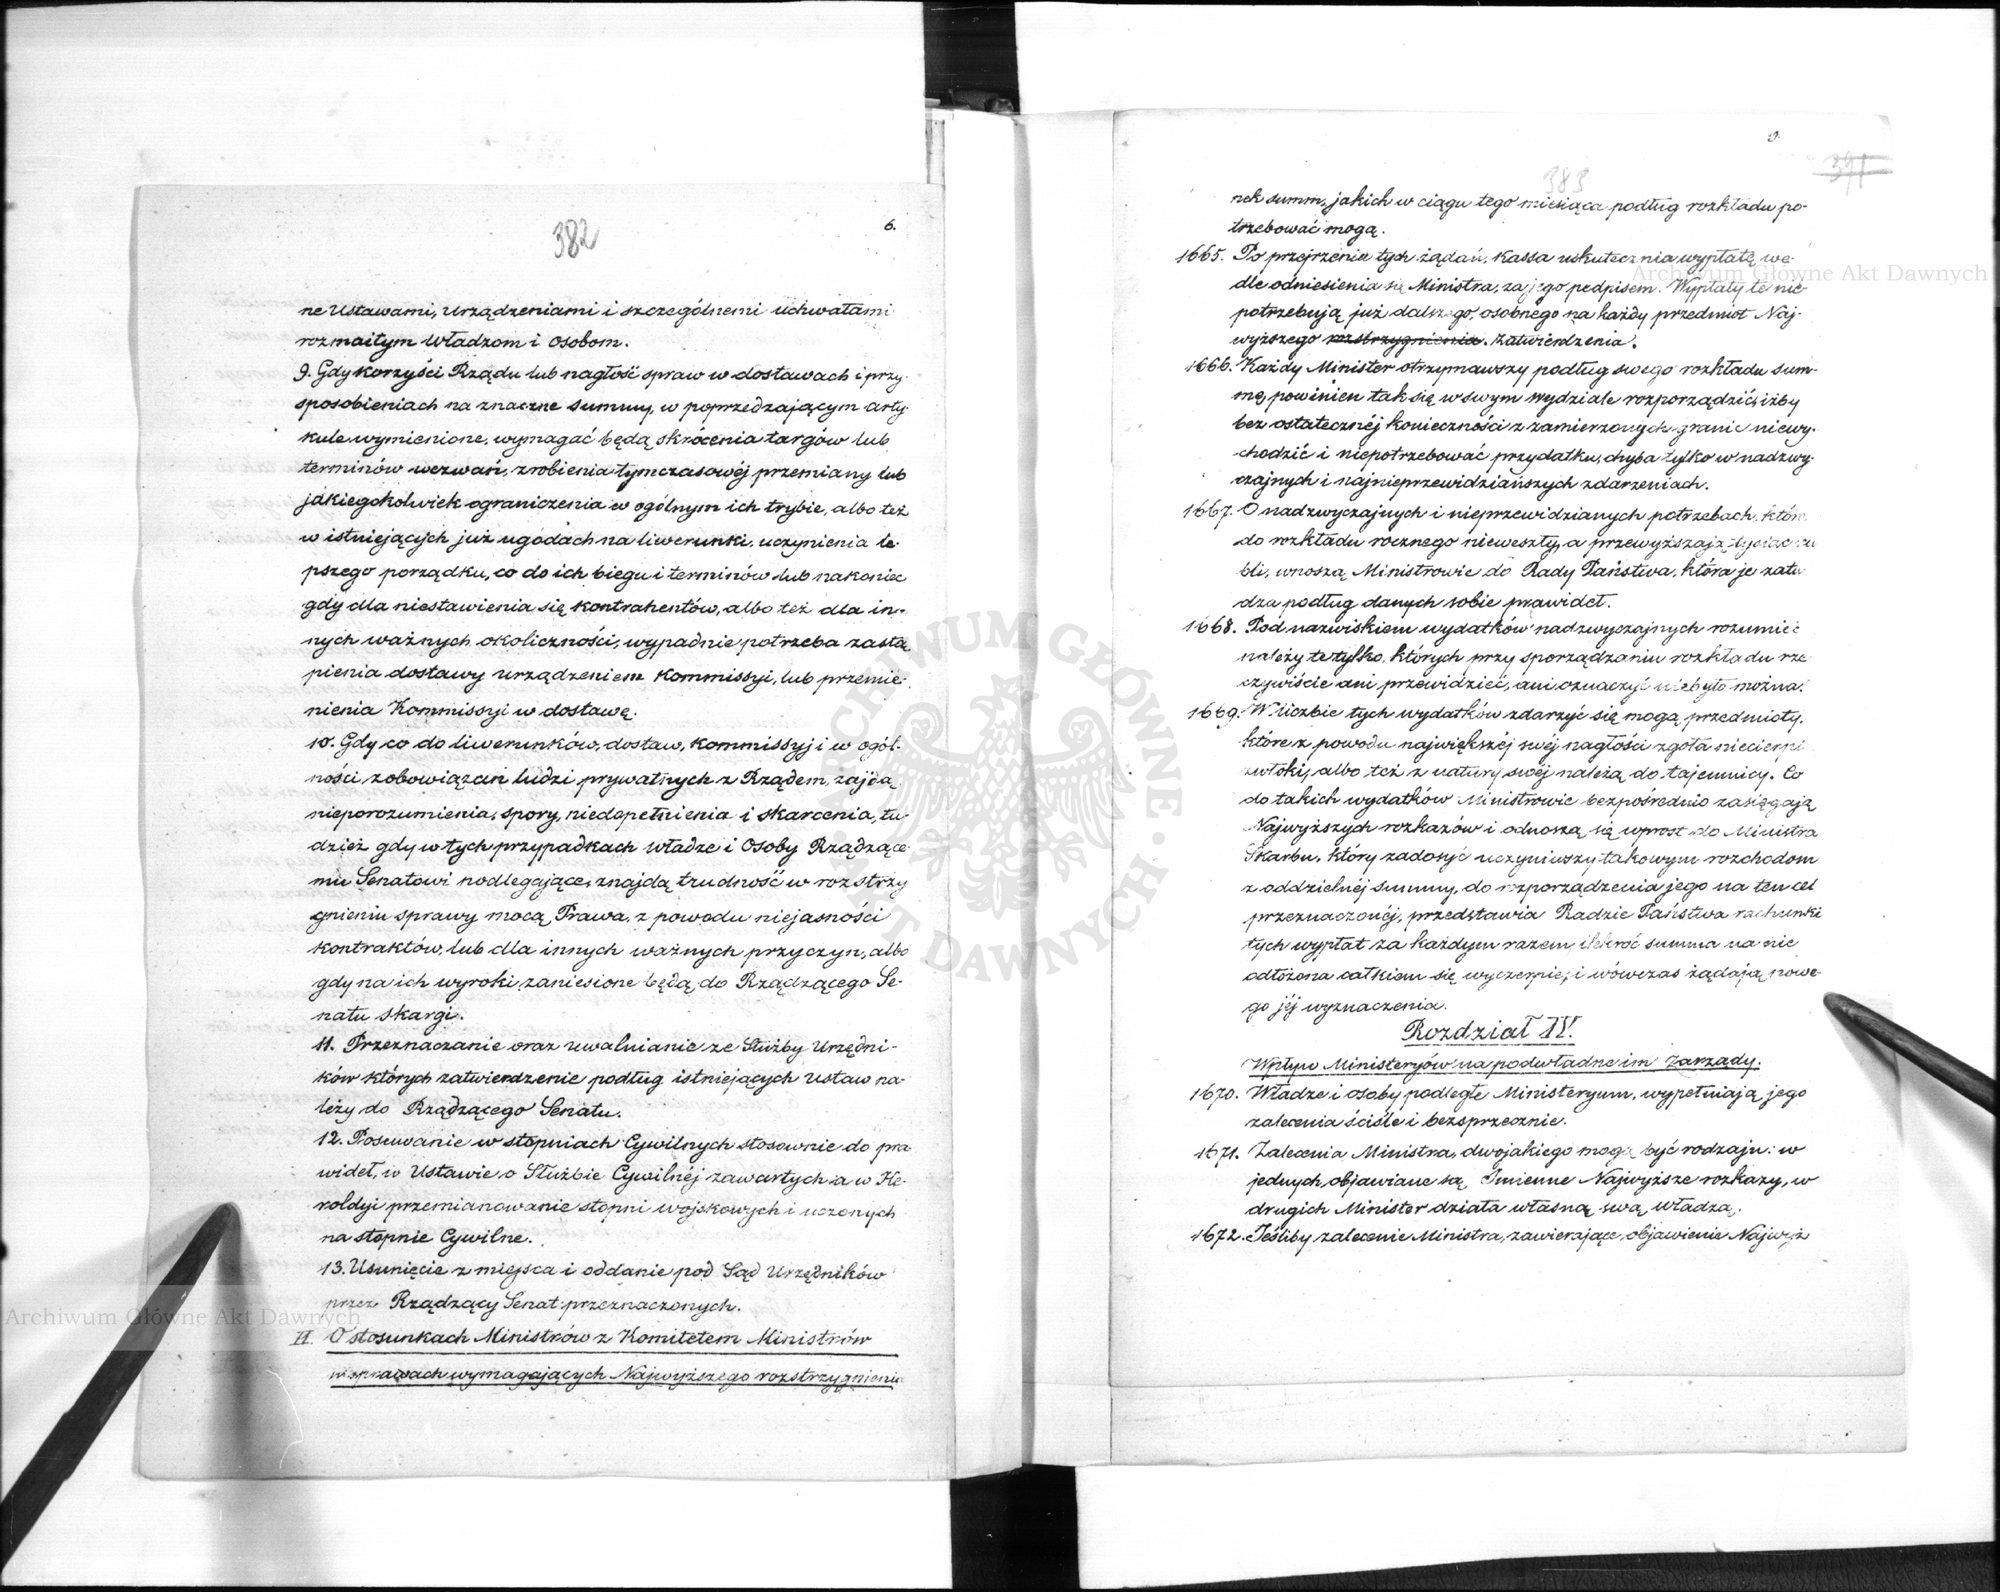 382
6.
ne Ustawami, Urządzeniami i szczególnemi uchwałami
rozmaitym Władzom i osobom.
9. Gdy korzyści Rządu lub nagłość spraw w dostawach i przy-
sposobieniach na znaczne summy, w poprzedzającym arty-
kule wymienione, wymagać będą skrócenia targów lub
terminów wezwań, zrobienia tymczasowéj przemiany lub
jakiegokolwiek ograniczenia w ogólnym ich trybie, albo też
w istniejących już ugodach na liwerunki, uczynienia le-
pszego porządku, co do ich biegu i terminów lub nakoniec
gdy dla niestawienia się kontrahentów, albo też dla in-
nych ważnych okoliczności, wypadnie potrzeba zastą-
pienia dostawy urządzeniem Kommissyi, lub przemie-
nienia Kommissyi w dostawę.
10. Gdy co do liwerunków, dostaw, Kommissyj i w ogól-
ności zobowiązań ludzi prywatnych z Rządem, zajdą
nieporozumienia, spory, niedopełnienia i skarcenia, tu-
dzież gdy w tych przypadkach Władze i Osoby Rządzące-
mu Senatowi podlegające, znajdą trudność w rozstrzy
gnieniu sprawy mocą Prawa, z powodu niejasności
kontraktów, lub dla innych ważnych przyczyn, albo
gdy na ich wyroki zaniesione będą do Rządzącego Se-
natu skargi.
11. Przeznaczanie oraz uwalnianie ze Służby Urzędni-
ków których zatwierdzenie podług istniejących Ustaw na-
leży do Rządzącego Senatu.
12. Posuwanie w stopniach Cywilnych stosownie do pra
wideł, w Ustawie o Służbie Cywilnéj zawartych a w He-
roldyi przemianowanie stopni wojskowych i uczonych
na stopnie Cywilne.
13. Usunięcie z miejsca i oddanie pod Sąd Urzędników
przez Rządzący Senat przeznaczonych.
II. O stosunkach Ministrów z Komitetem Ministrów
w sprawach wymagających Najwyższego rozstrzygnienia
9.
383
391
nek summ, jakich w ciągu tego miesiąca podług rozkładu po-
trzebować mogą.
1665. Po przejrzeniu tych żądań, Kassa uskutecznia wypłatę we-
dle odniesienia się Ministra, za jego podpisem. Wypłaty te nie
potrzebują już dalszego, osobnego na każdy przedmiot Naj-
wyższego rozstrzygnienia. zatwierdzenia.
1666. Każdy Minister otrzymawszy podług swego rozkładu sum-
mę, powinien tak się w swym wydziale rozporządzić, iżby
bez ostatecznéj konieczności z zamierzonych granic niewy-
chodzić i niepotrzebować przydatku, chyba tylko w nadzwy-
czajnych i najnieprzewidziańszych zdarzeniach.
1667. O nadzwyczajnych i nieprzewidzianych potrzebach, które
do rozkładu rocznego nieweszły, a przewyższają tysiąc ru
bli, wnoszą Ministrowie do Rady Państwa, która je zatw
dza podług danych sobie prawideł.
1668. Pod nazwiskiem wydatków nadzwyczajnych rozumieć
należy te tylko, których przy sporządzaniu rozkładu rze
czywiście ani przewidzieć, ani oznaczyć niebyło można.
1669. W liczbie tych wydatków zdarzyć się mogą przedmioty,
które z powodu największéj swéj nagłości zgoła niecierpi
zwłoki, albo też z natury swéj należą do tajemnicy. Co
do takich wydatków Ministrowie bezpośrednio zasięgają
Najwyższych rozkazów i odnoszą się wprost do Ministra
Skarbu, który zadosyć uczyniwszy takowym rozchodom
z oddzielnéj summy, do rozporządzenia jego na ten cel
przeznaczonéj, przedstawia Radzie Państwa rachunki
tych wypłat za każdym razem, ilekroć summa na nie
odłożona całkiem się wyczerpie, i wówczas żądają nowe-
go jéj wyznaczenia.
Rozdział IV.
Wpływ Ministeryów na podwładne im Zarządy.
1670. Władze i osoby podległe Ministeryum, wypełniają jego
zalecenia ściśle i bezsprzecznie.
1671. Zalecenia Ministra, dwojakiego mogą być rodzaju: w
jednych objawiane są Imienne Najwyższe rozkazy, w
drugich Minister działa własną swą władzą.
1672. Jeśliby zalecenie Ministra, zawierające objawienie Najwyż
Archiwum Główne Akt Dawnych
Archiwum Główne Akt Dawnych
ARCHIWUM GŁÓWNE AKT DAWNYCH